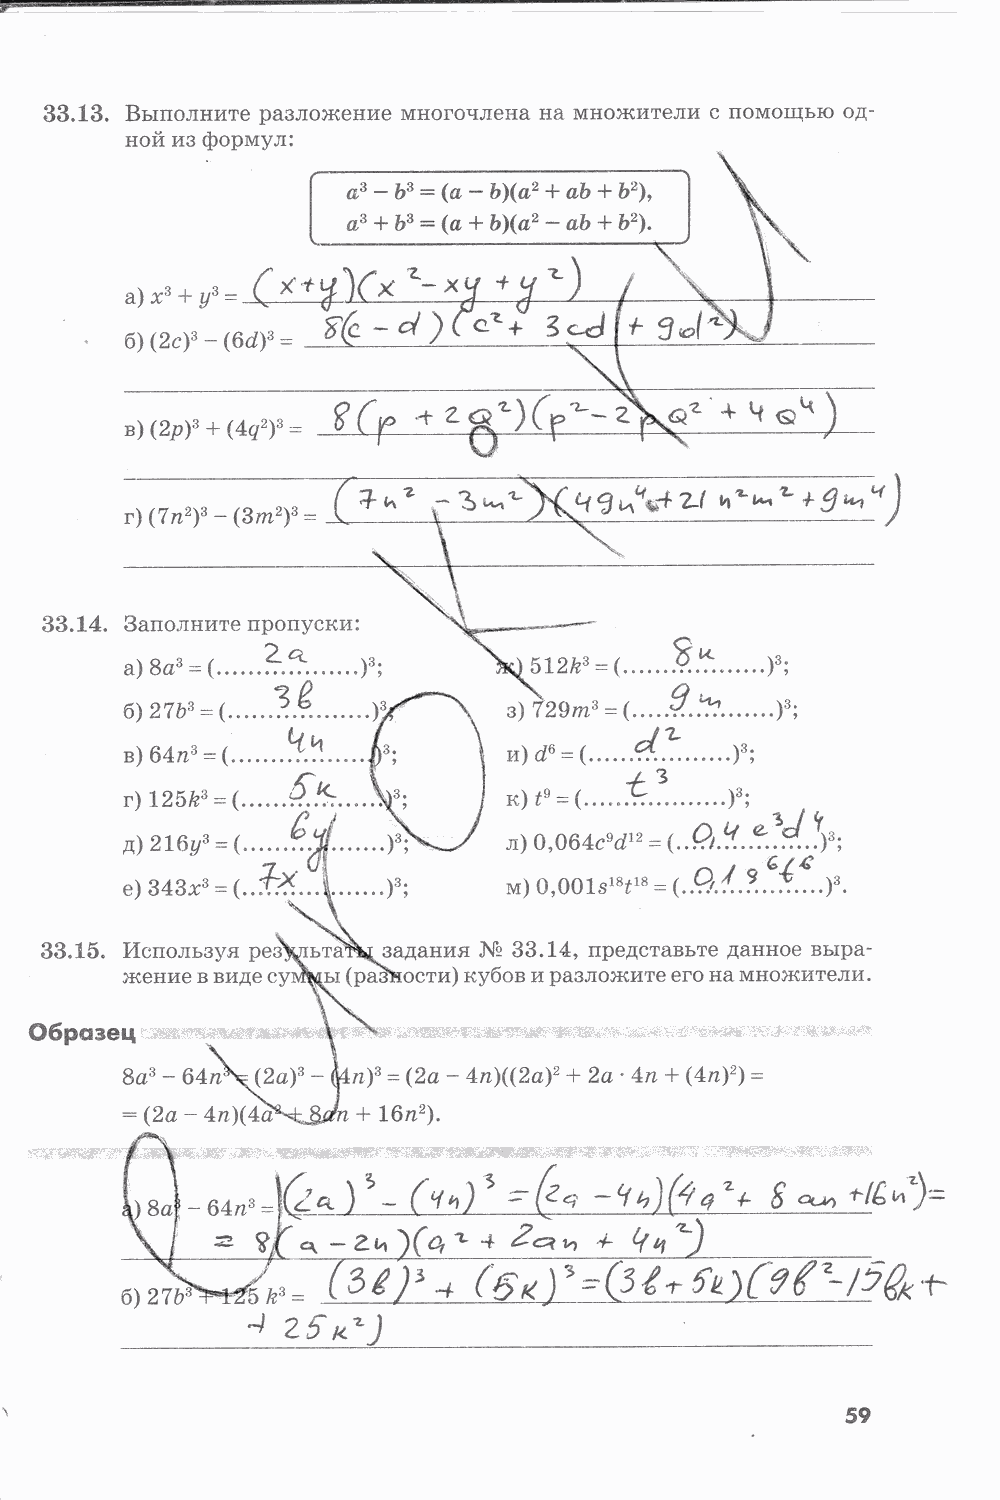 33.13. Выполните разложение многочлена на множители с помощью од-
ной из формул:
a³ − b³ = (a − b)(a² + ab + b²),
a³ + b³ = (a + b)(a² − ab + b²).
а) x³ + y³ = (x+y)(x²−xy+y²)
б) (2c)³ − (6d)³ = 8(c−d)(c²+3cd+9d²)
в) (2p)³ + (4q²)³ = 8(p+2q²)(p²−2pq²+4q⁴)
г) (7n²)³ − (3m²)³ = (7n²−3m²)(49n⁴+21n²m²+9m⁴)
33.14. Заполните пропуски:
а) 8a³ = (2a)³; ж) 512k³ = (8к)³;
б) 27b³ = (3в)³; з) 729m³ = (9m)³;
в) 64n³ = (4n)³; и) d⁶ = (d²)³;
г) 125k³ = (5к)³; к) t⁹ = (t³)³;
д) 216y³ = (6y)³; л) 0,064c⁹d¹² = (0,4c³d⁴)³;
е) 343x³ = (7x)³; м) 0,001s¹⁸t¹⁸ = (0,1s⁶t⁶)³.
33.15. Используя результаты задания № 33.14, представьте данное выра-
жение в виде суммы (разности) кубов и разложите его на множители.
Образец
8a³ − 64n³ = (2a)³ − (4n)³ = (2a − 4n)((2a)² + 2a · 4n + (4n)²) =
= (2a − 4n)(4a² + 8an + 16n²).
а) 8a³ − 64n³ = (2a)³−(4n)³=(2a−4n)(4a²+8an+16n²)=
= 8(a−2n)(a²+2an+4n²)
б) 27b³ + 125 k³ = (3в)³+(5к)³=(3в+5к)(9в²−15вк+
+25к²)
59